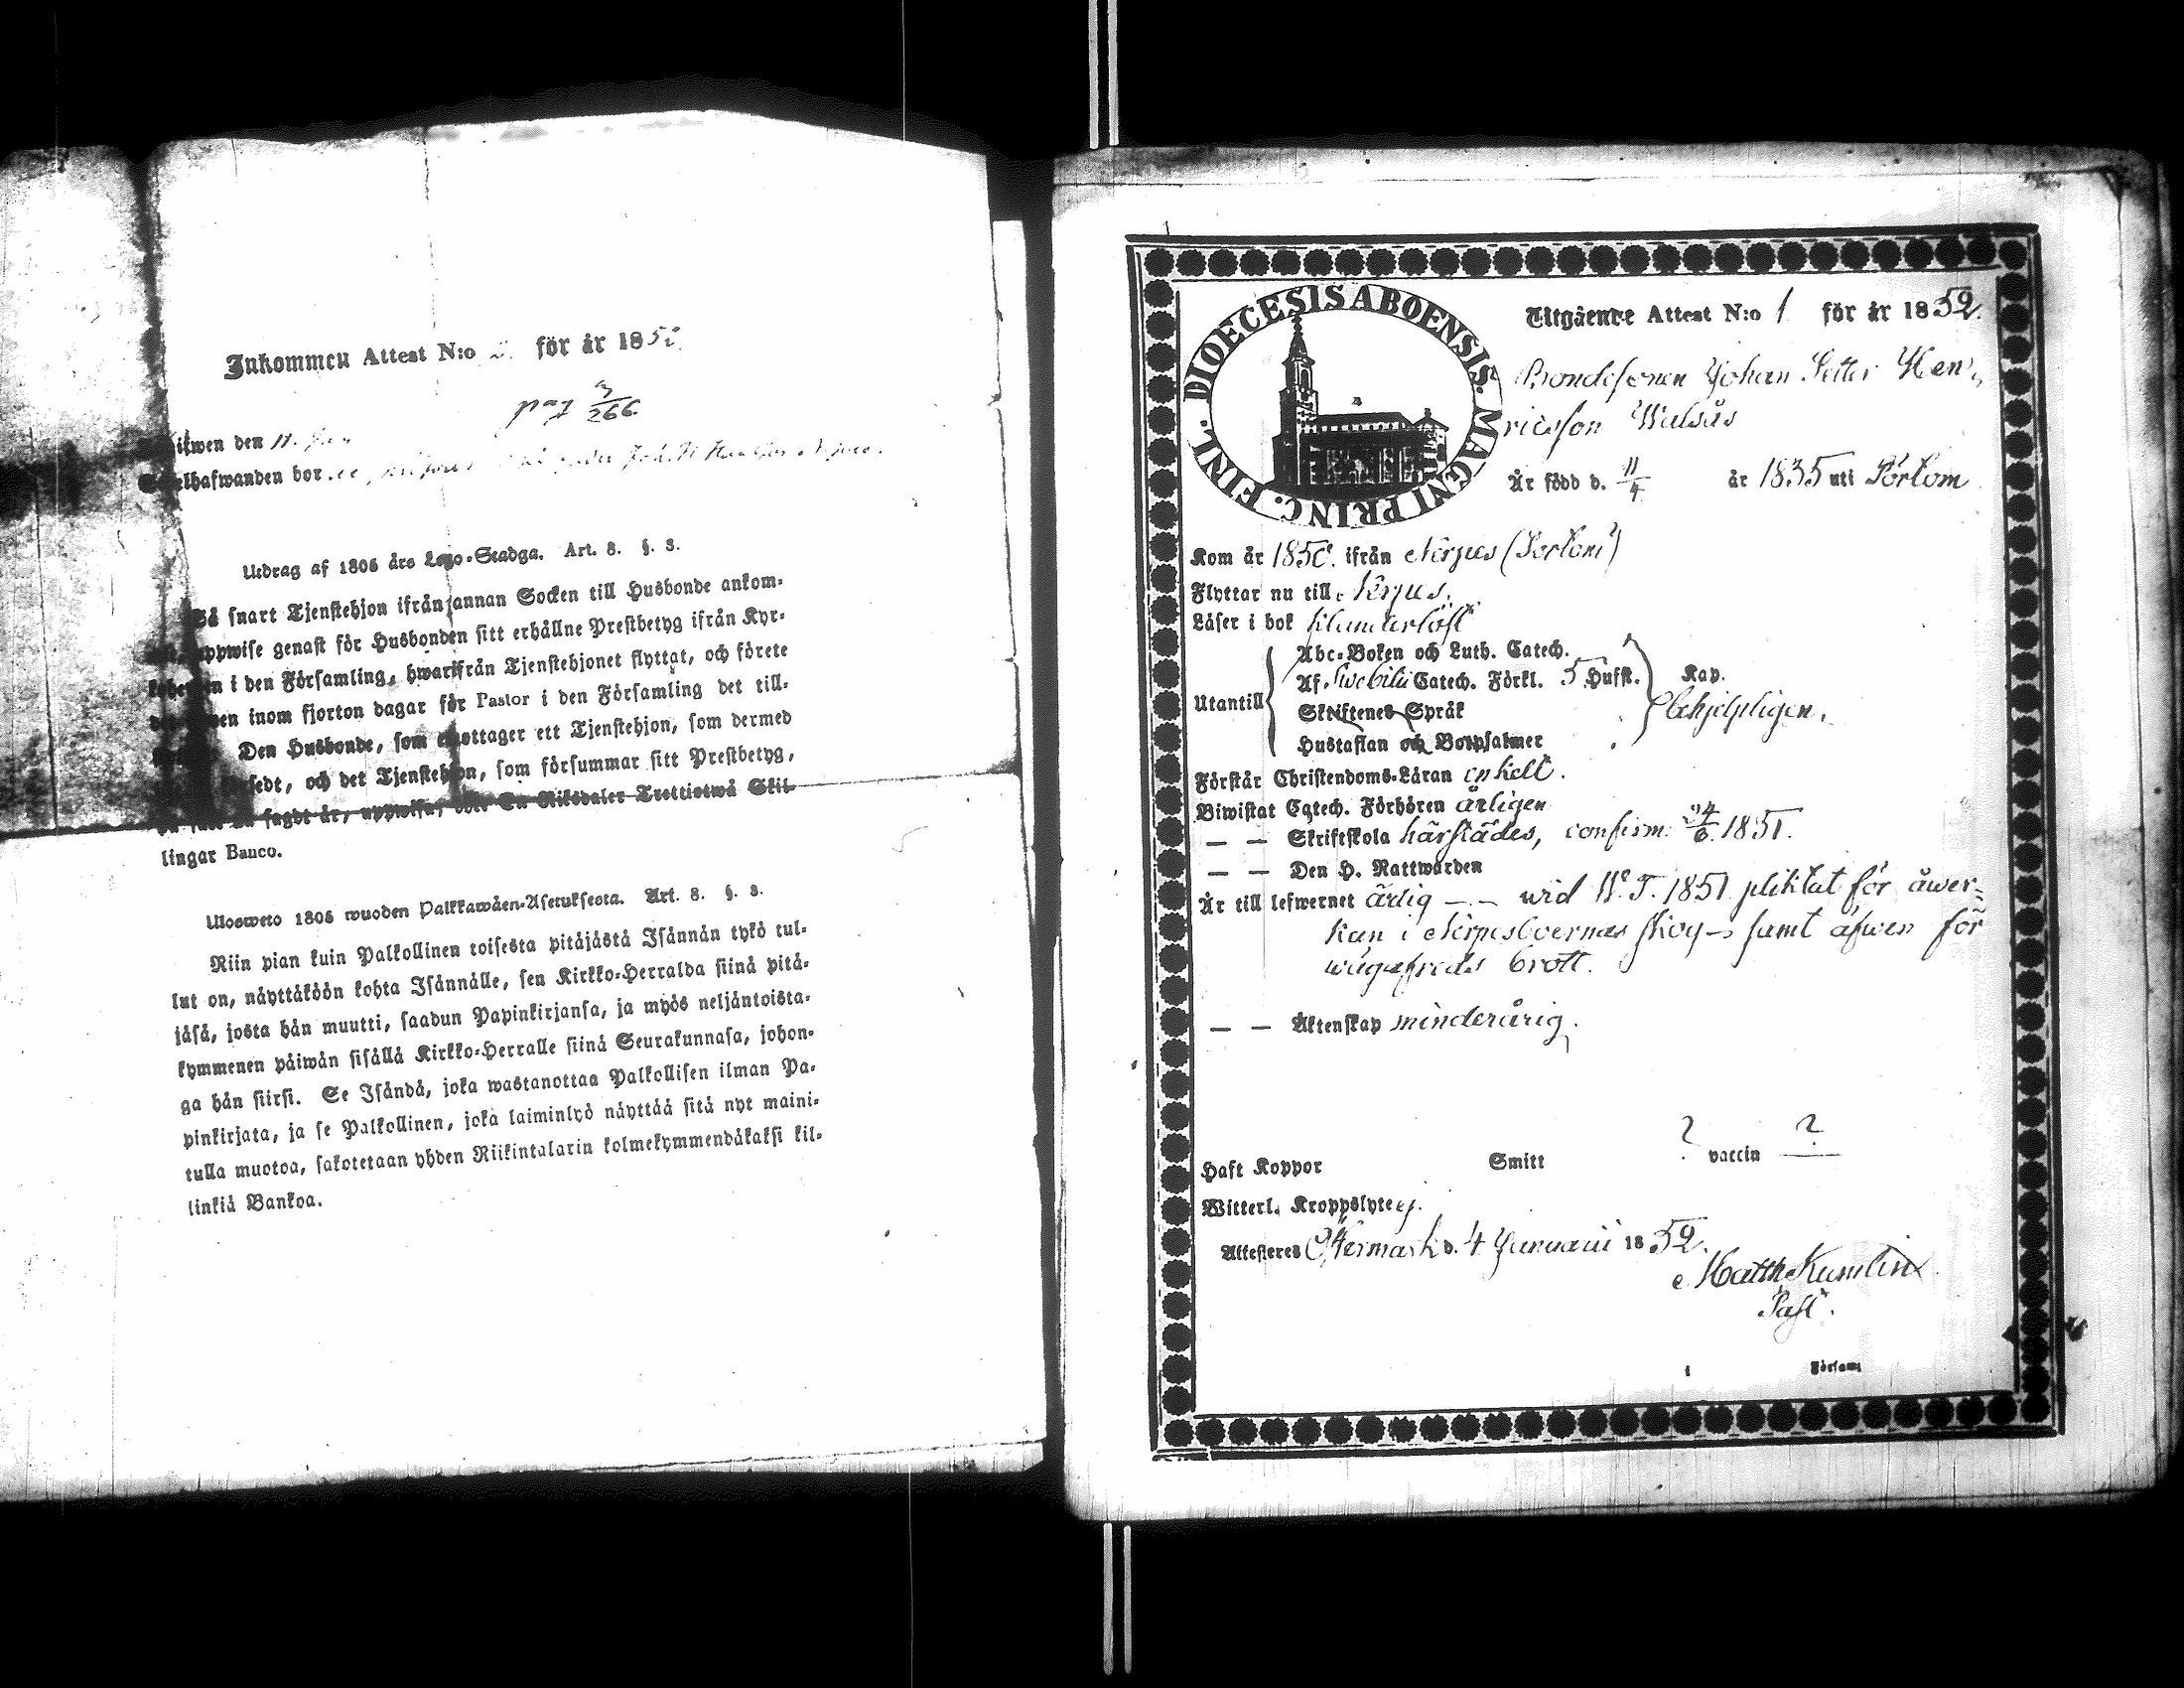 Inkommen Attest N:o 2. för år 1852
pag 3/266
ifwen den 11. Jan
elhafwanden bor
Utdrag af 1805 års Lego-Stadga. Art. 8. §. 3.
Så snart Tjenstehjon ifrån annan Socken till Husbonde ankom-
uppwise genast för Husbonden sitt erhållne Prestbetyg ifrån Kyr-
i den Församling, hwarifrån Tjenstehjonet flyttat, och förete
inom fjorton dagar för Pastor i den Församling det till-
Den Husbonde, som emottager ett Tjenstehjon, som dermed
sedt, och det Tjenstehjon, som försummar sitt Prestbetyg,
sagdt är, uppwisa, böte En Riksdaler Trettiotwå Skil-
lingar Banco.
Ulosweto 1805 wuoden Palkkawäen-Asetuksesta. Art. 8. §. 3.
Niin pian kuin Palkollinen toisesta pitäjästä Isännän tykö tul-
lut on, näyttäköön kohta Isännälle, sen Kirkko-Herralda siinä pitä-
jäsä, josta hän muutti, saadun Papinkirjansa, ja myös neljäntoista-
kymmenen päiwän sisällä Kirkko-Herralle siinä Seurakunnasa, johon-
ga hän siirsi. Se Isändä, joka wastanottaa Palkollisen ilman Pa-
pinkirjata, ja se Palkollinen, joka laiminlyö näyttää sitä nyt maini-
tulla muotoa, sakotetaan yhden Riikintalarin kolmekymmendäkaksi kil-
linkiä Bankoa.
DIOECESIS ABOENSIS. MAGNI PRINC. FINL.
Utgående Attest N:o 1 för år 1852.
Bondesonen Johan Petter Hen-
ricsson Walsås
Är född d. 11/4 år 1835 uti Pörtom
Kom år 1850. ifrån Nerpes (Pörtom)
Flyttar nu till Nerpes.
Läser i bok klanderlöst
Abc-Boken och Luth. Catech.
Utantill Af Swebilii Catech. Förkl. 5 Hufst. Kap.
Skriftenes Språk behjelpligen.
Hustaflan och Botpsalmer
Förstår Christendoms-Läran enkelt.
Biwistat Catech. Förhören årligen
— — Skriftskola härstädes, confirm. 24/6 1851.
— — Den H. Nattwarden
Är till lefwernet ärlig — wid W. T. 1851 pliktat för åwer-
kan i Nerpesboernas skog samt äfwen för
wägafreds brott.
— — Äktenskap minderårig.
Haft Koppor Smitt ? vaccin ?
Witterl. Kroppslyte ej.
Attesteras Öfermark d. 4 Januarii 1852.
Matth. Kumlin
Past.
i Församl.